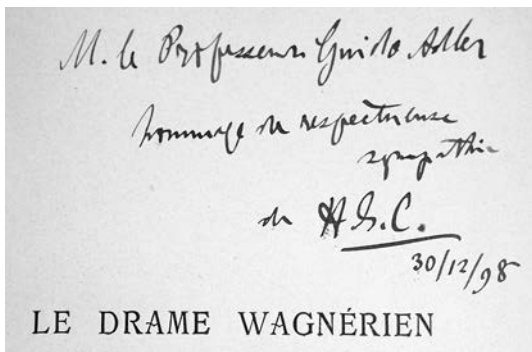 M. le Professeur Guido Adler
hommage de respectueuse
sympathie
de H. S. C.
30/12/98
LE DRAME WAGNÉRIEN